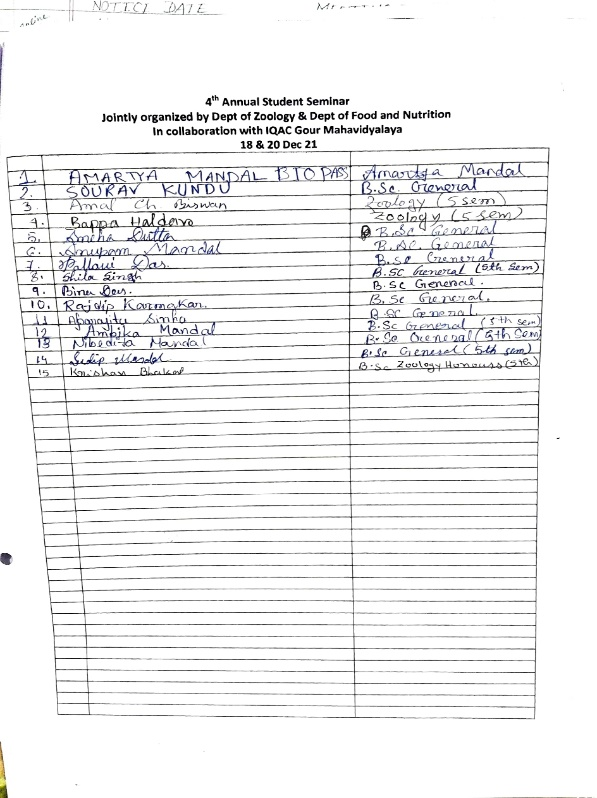 NOTICE DATE
online
4th Annual Student Seminar
Jointly organized by Dept of Zoology & Dept of Food and Nutrition
In collaboration with IQAC Gour Mahavidyalaya
18 & 20 Dec 21
1. AMARTYA MANDAL BIO PASS Amartya Mandal
2. SOURAV KUNDU B.Sc. General
3. Amal Ch Biswas Zoology (5 sem)
4. Bappa Halder Zoology (5 sem)
5. Sneha Dutta B.Sc General
6. Anupam Mandal B.Sc. General
7. Pallavi Das. B.Sc General
8. Shila Singh B.SC General (5th Sem)
9. Binu Das. B.Sc General.
10. Rajdip Karmakar. B.Sc General.
11 Aparajita Sinha B.Sc General.
12 Ambika Mandal B.Sc General (5th sem)
13 Nibedita Mandal B.Sc General (5th Sem)
14 Sudip Mandal B.Sc General (5th sem)
15 Krishna Bhakat B.Sc Zoology Honours (5th)